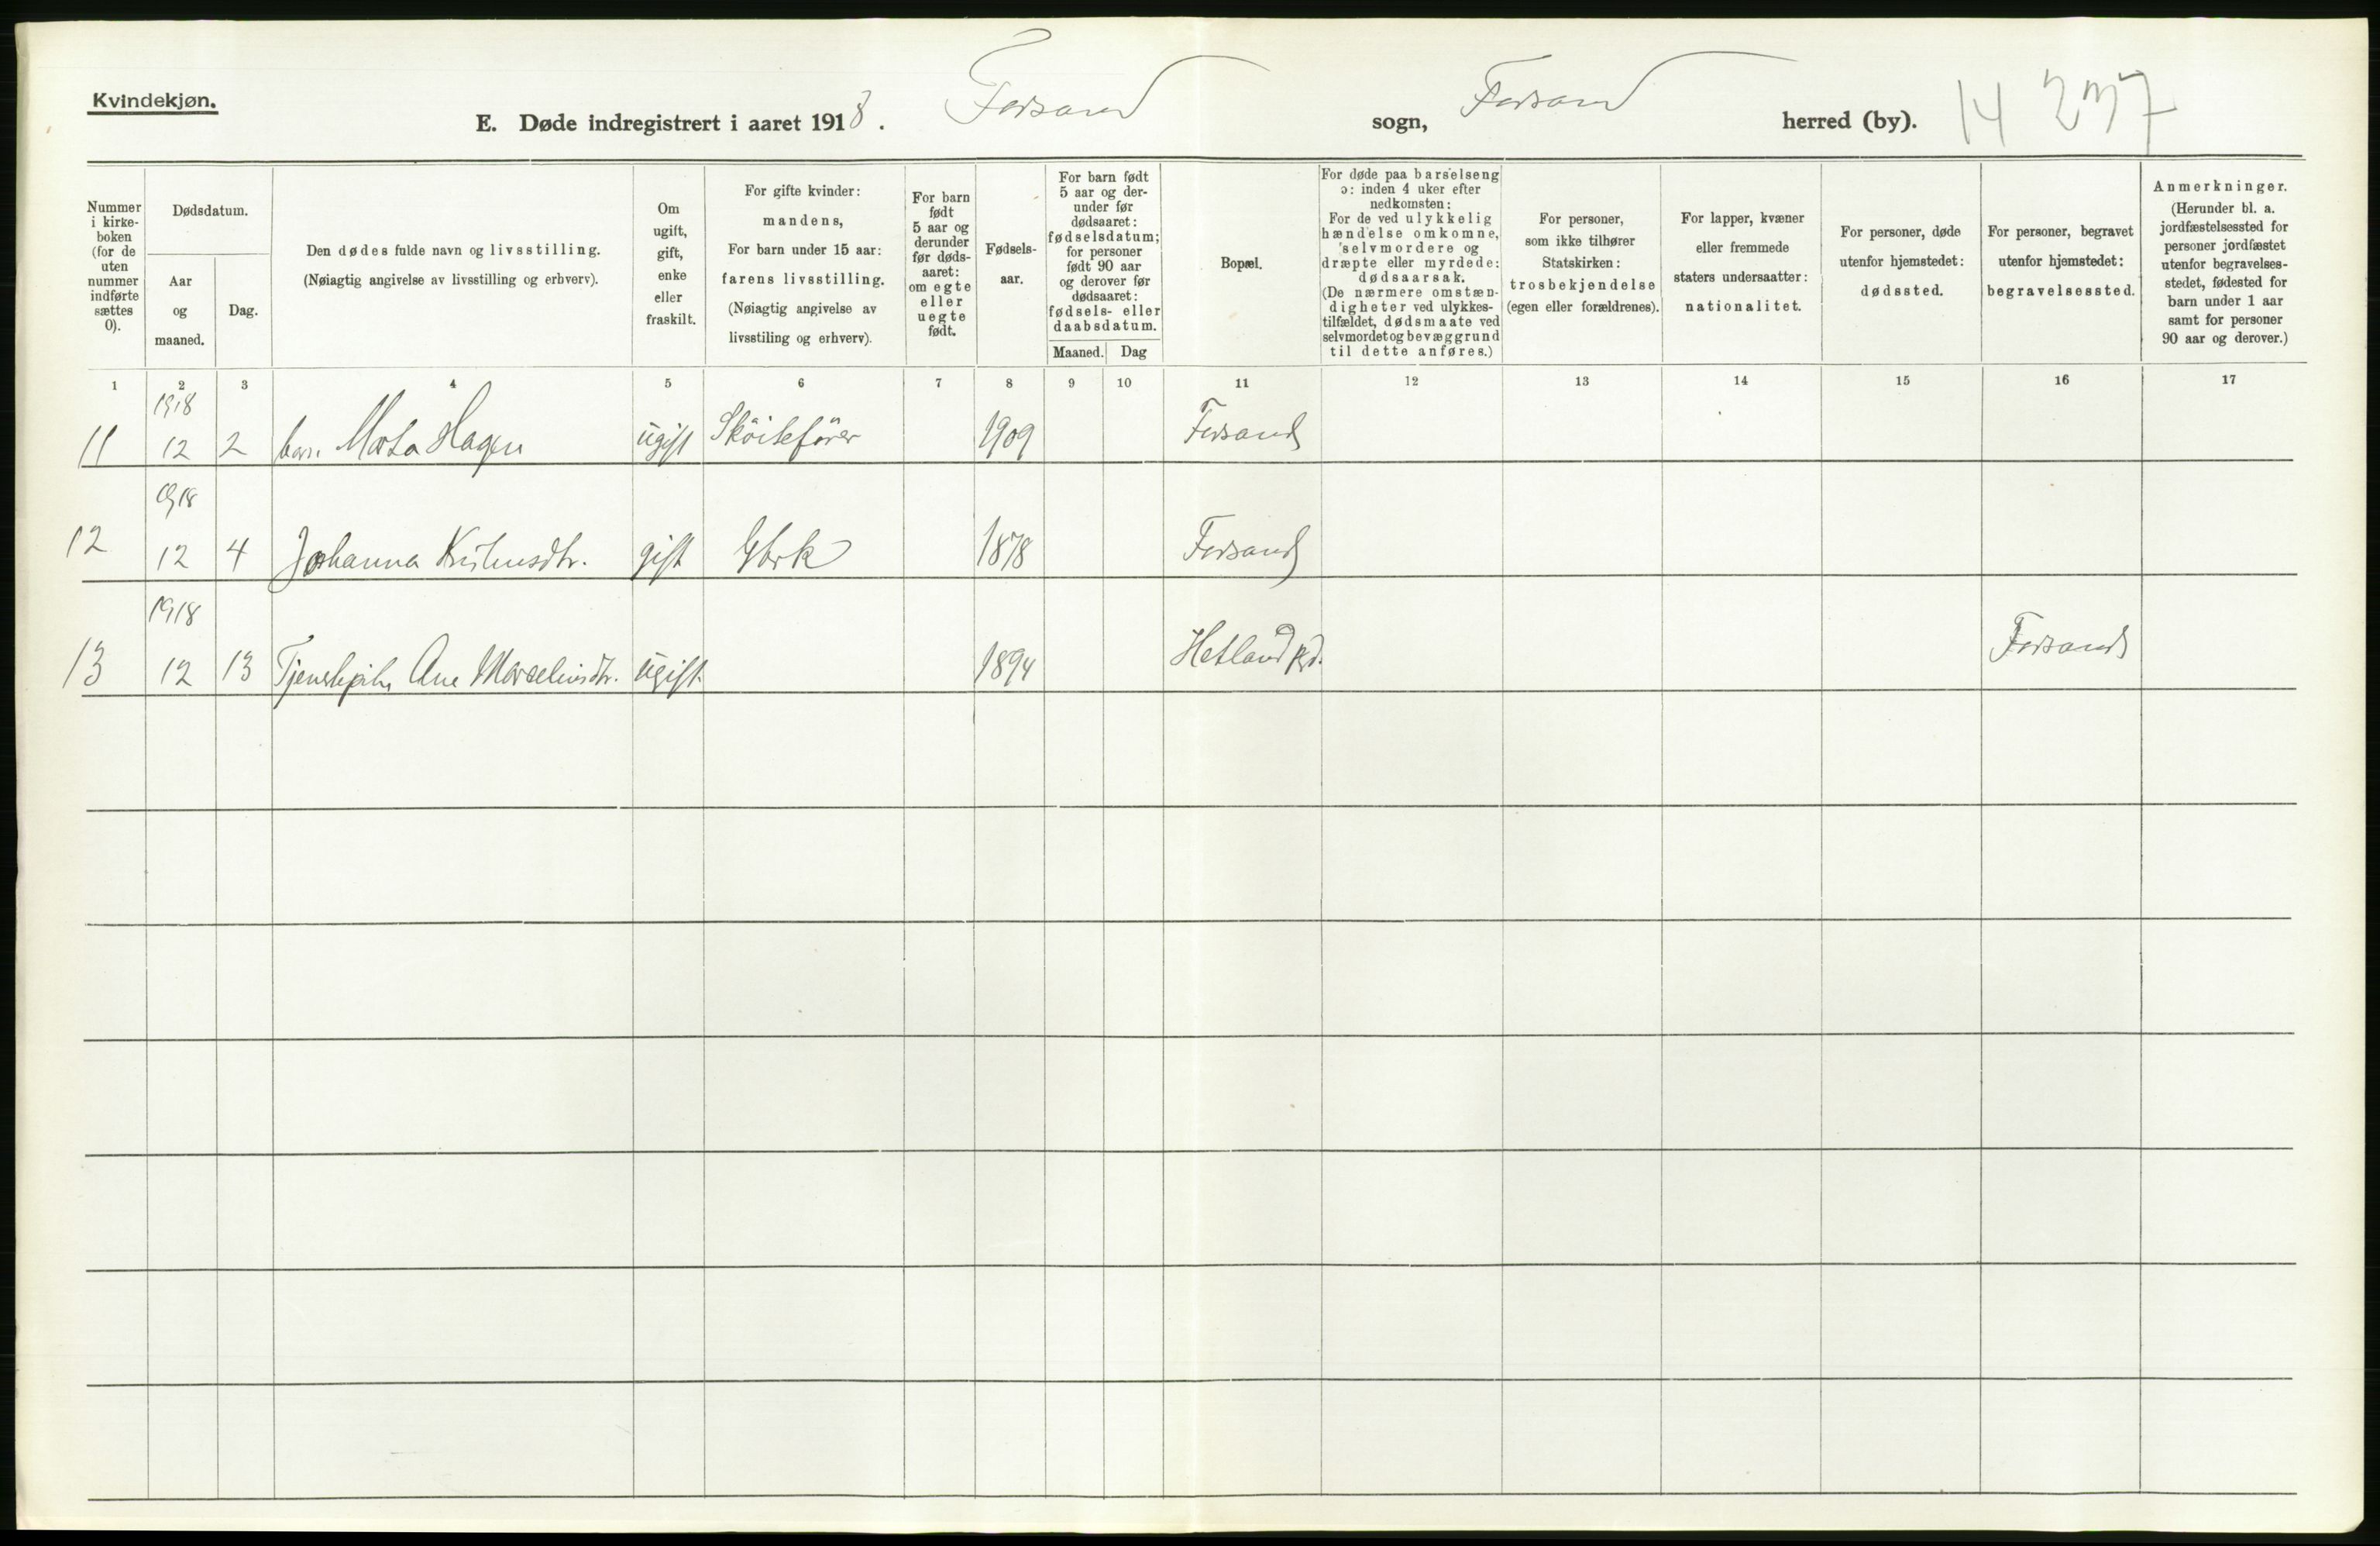 Kvindekjøn.
E. Døde indregistrert i aaret 1918. Forsand sogn, Forsand herred (by). 14 237
Nummer i kirke-boken (for de uten nummer indførte sættes 0).
Dødsdatum.
Aar og maaned.
Dag.
Den dødes fulde navn og livsstilling.
(Nøiagtig angivelse av livsstilling og erhverv).
Om ugift, gift, enke eller fraskilt.
For gifte kvinder:
mandens,
For barn under 15 aar:
farens livsstilling.
(Nøiagtig angivelse av
livsstiling og erhverv).
For barn
født
5 aar og
derunder
før døds-
aaret:
om egte
eller
uegte
født.
Fødsels-
aar.
For barn født
5 aar og der-
under før
dødsaaret:
fødselsdatum;
for personer
født 90 aar
og derover før
dødsaaret:
fødsels- eller
daabsdatum.
Maaned. Dag
Bopæl.
For døde paa barselseng
ɔ: inden 4 uker efter
nedkomsten:
For de ved ulykkelig
hændelse omkomne,
selvmordere og
dræpte eller myrdede:
dødsaarsak.
(De nærmere omstæn-
digheter ved ulykkes-
tilfældet, dødsmaate ved
selvmordet og bevæggrund
til dette anføres.)
For personer,
som ikke tilhører
Statskirken:
trosbekjendelse
(egen eller forældrenes).
For lapper, kvæner
eller fremmede
staters undersaatter:
nationalitet.
For personer, døde
utenfor hjemstedet:
dødssted.
For personer, begravet
utenfor hjemstedet:
begravelsessted.
Anmerkninger.
(Herunder bl. a.
jordfæstelsessted for
personer jordfæstet
utenfor begravelses-
stedet, fødested for
barn under 1 aar
samt for personer
90 aar og derover.)
1 2 3 4 5 6 7 8 9 10 11 12 13 14 15 16 17
1918
11 12 2 barn Marta Hagen ugift Sköiteförer 1909 Forsand
1918
12 12 4 Johanna gift Gbrk 1878 Forsand
1918
13 12 13 Ane Marselinsdtr. ugift 1894 Hetland Forsand